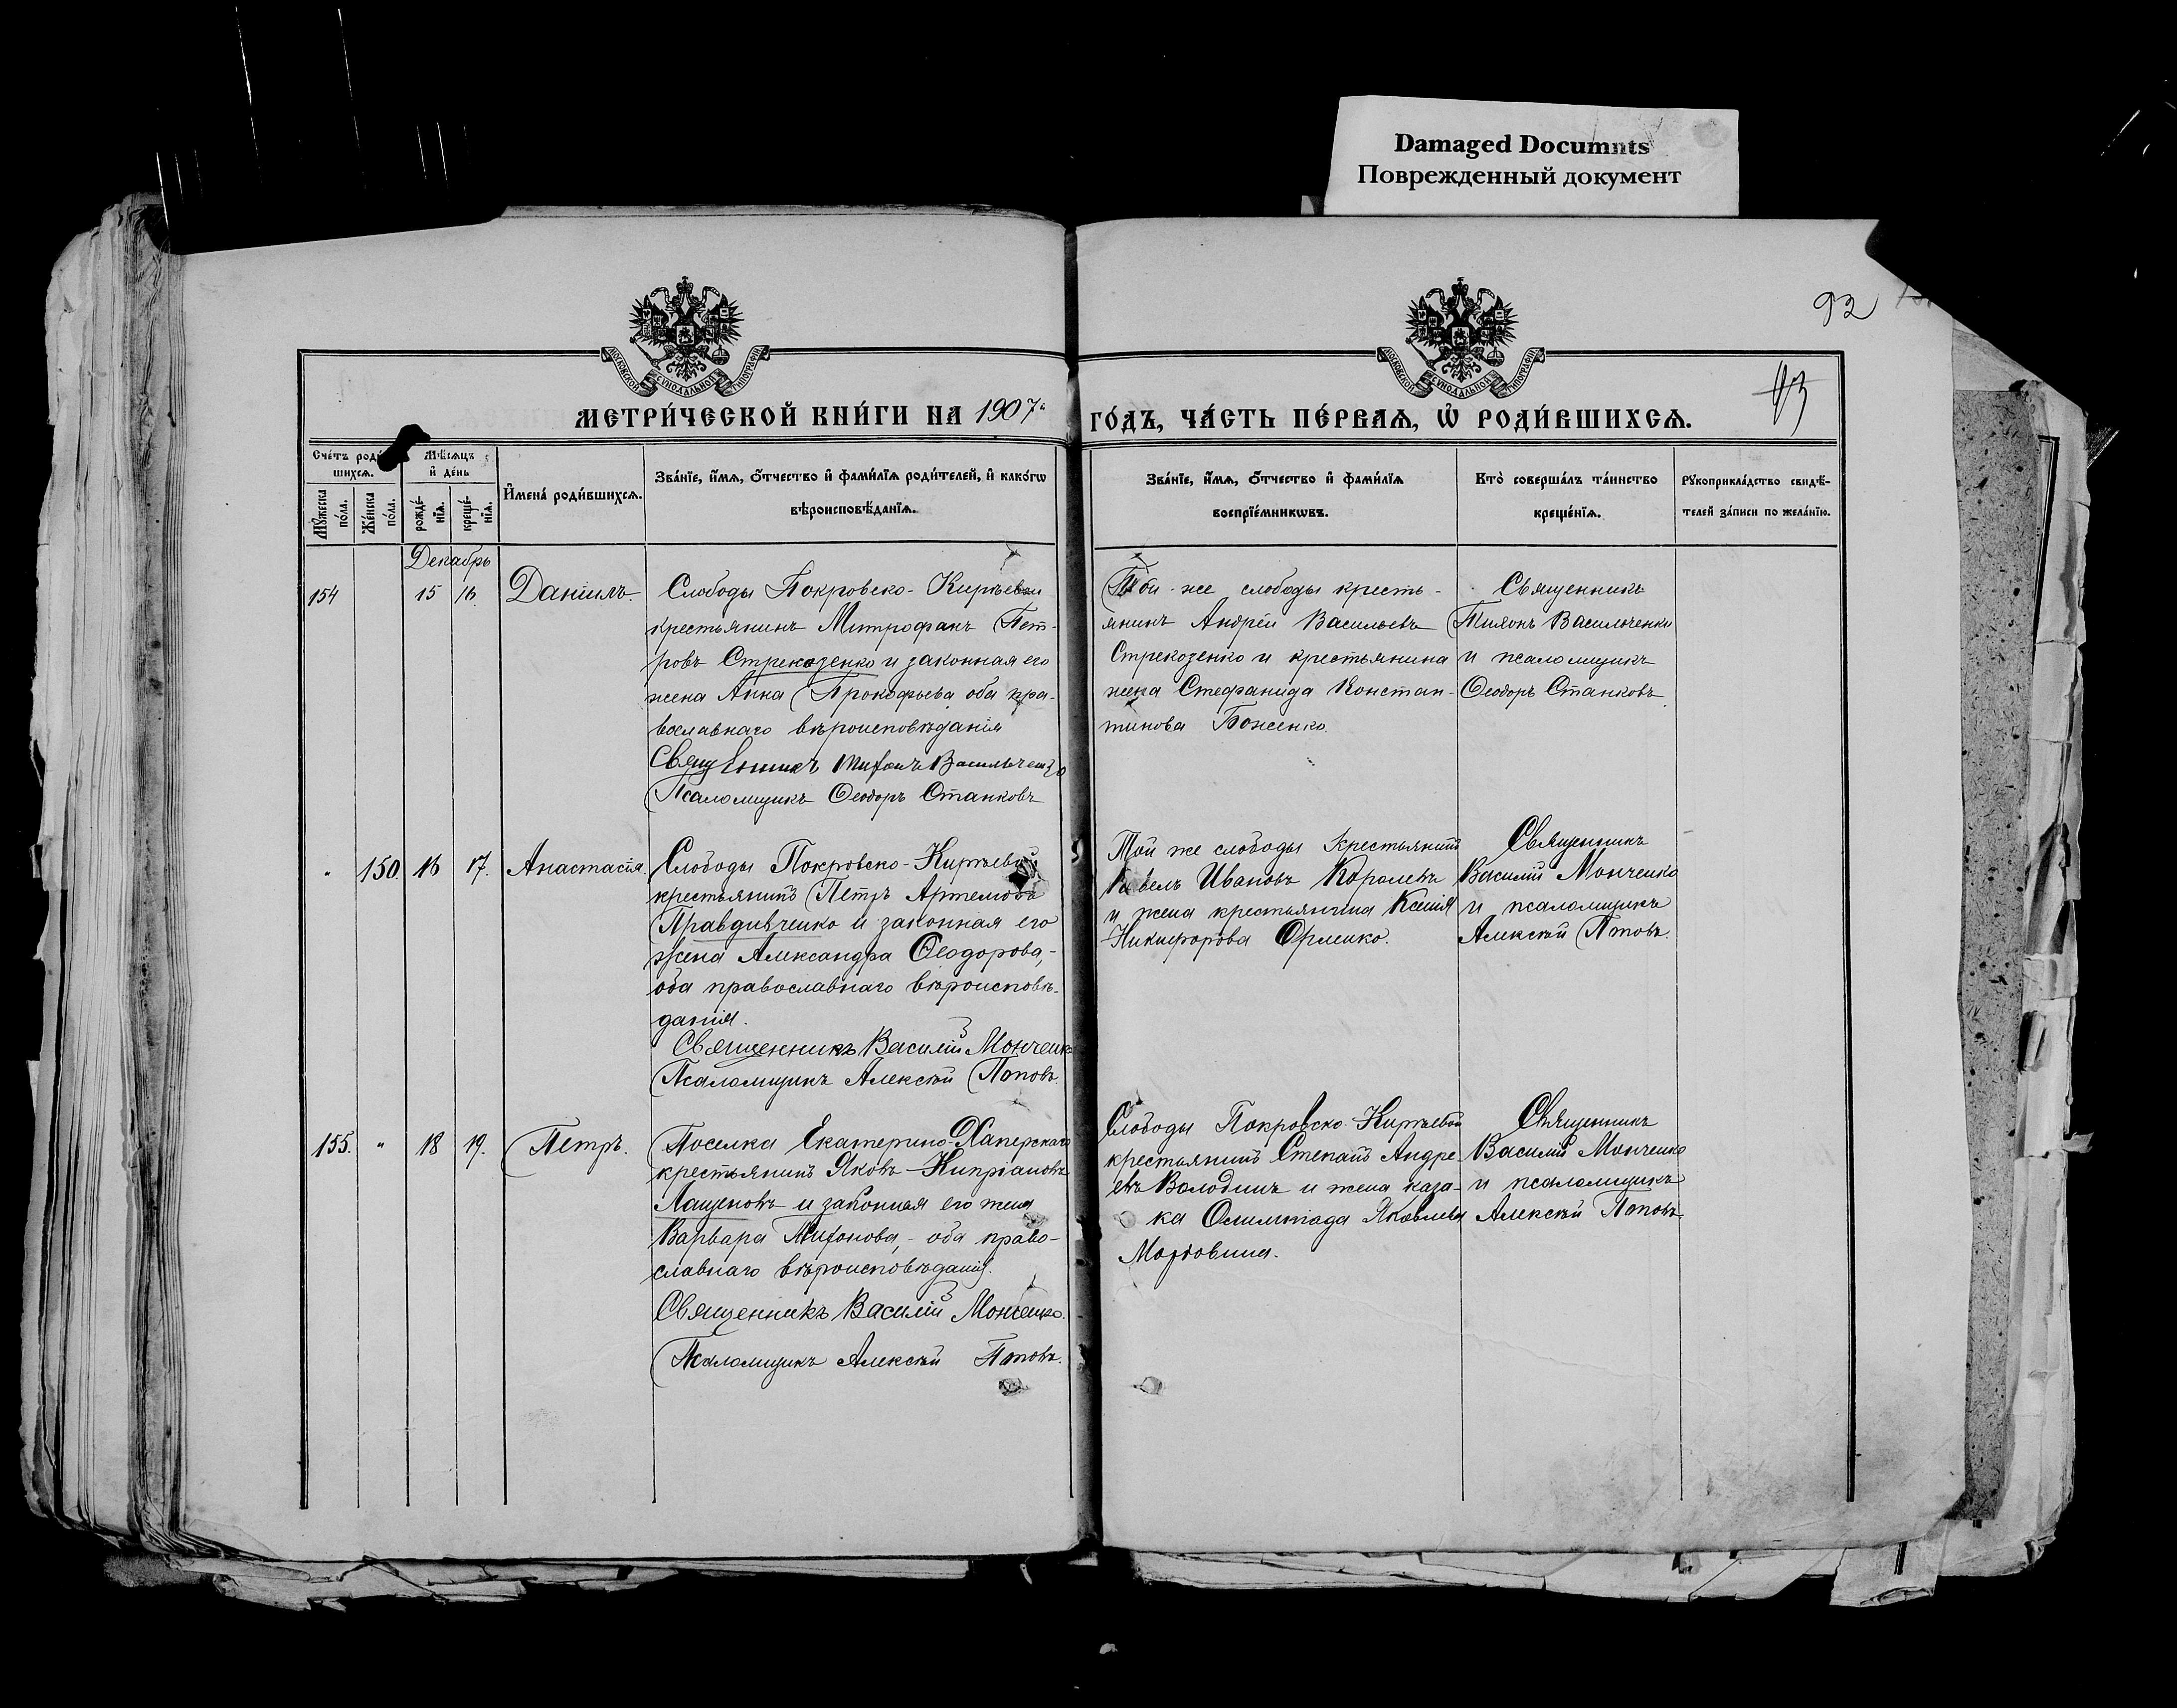 Damaged Documnts
Поврежденный документ
92
МОСКОВСКОЙ СУНОДАЛЬНОЙ ТИПОГРАФІИ
МОСКОВСКОЙ СУНОДАЛЬНОЙ ТИПОГРАФІИ
МЕТРИ́ЧЕСКОЙ КНИ́ГИ НА 1907
ГО́ДЪ, ЧА́СТЬ ПЕ́РВАѦ, Ѡ҆ РОДИ́ВШИХСѦ.
Сче́тъ роди
шихсѧ.
Мꙋ́жеска по́ла.
Же́нска по́ла.
Мѣ́сѧцъ
и҆ де́нь
рожде́нїѧ.
креще́нїѧ.
И҆мена̀ роди́вшихсѧ.
Зва́нїе, и҆́мѧ, ѻ҆́тчество и҆ фами́лїѧ роди́телей, и҆ како́гѡ
вѣроисповѣ́данїѧ.
Зва́нїе, и҆́мѧ, ѻ҆́тчество и҆ фами́лїѧ
воспрїе́мникѡвъ.
Кто̀ соверша́лъ та́инство
креще́нїѧ.
Рꙋкоприкла́дство свидѣ́-
телей за́писи по жела́нїю.
Декабрь
154
15
16.
Даніилъ.
Слободы Покровско-Кирѣевки
крестьянинъ Митрофанъ Пет-
ровъ Стрекозенко и законная его
жена Анна Прокофьева оба пра-
вославнаго вѣроисповѣданія
Священникъ Тихонъ Васильченко
Псаломщикъ Ѳеодоръ Станковъ
Той же слободы кресть-
янинъ Андрей Васильевъ
Стрекозенко и крестьянина
жена Стефанида Констан-
тинова Боженко.
Священникъ
Тихонъ Васильченко
и псаломщикъ
Ѳеодоръ Станковъ.
"
150.
16
17.
Анастасія.
Слободы Покровско-Кирѣевой
крестьянинъ Петръ Артемовъ
Правдивченко и законная его
жена Александра Ѳеодорова,-
оба православнаго вѣроисповѣ-
данія.
Священникъ Василій Монченко
Псаломщикъ Алексѣй Поповъ.
Той же слободы крестьянинъ
Павелъ Ивановъ Королевъ
и жена крестьянина Ксенія
Никифорова Орленко.
Священникъ
Василій Монченко
и псаломщикъ
Алексѣй Поповъ.
155.
"
18
19.
Петръ.
Поселка Екатерино-Хаперскаго
крестьянинъ Яковъ Кипріановъ
Лащеновъ и законная его жена
Варвара Тихонова,- оба право-
славнаго вѣроисповѣданія.
Священникъ Василій Монченко.
Псаломщикъ Алексѣй Поповъ.
Слободы Покровско-Кирѣевой
крестьянинъ Степанъ Андре-
евъ Володинъ и жена каза-
ка Яковлева
Мордовина.
Священникъ
Василій Монченко
и псаломщикъ
Алексѣй Поповъ.